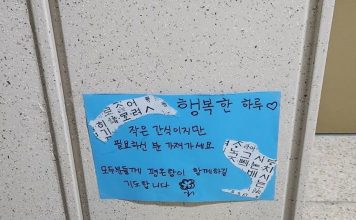 행복한 하루♡
작은 간식이지만
필요하신 분 가져가세요
모두분들께 평온함이 함께하길
기도합니다